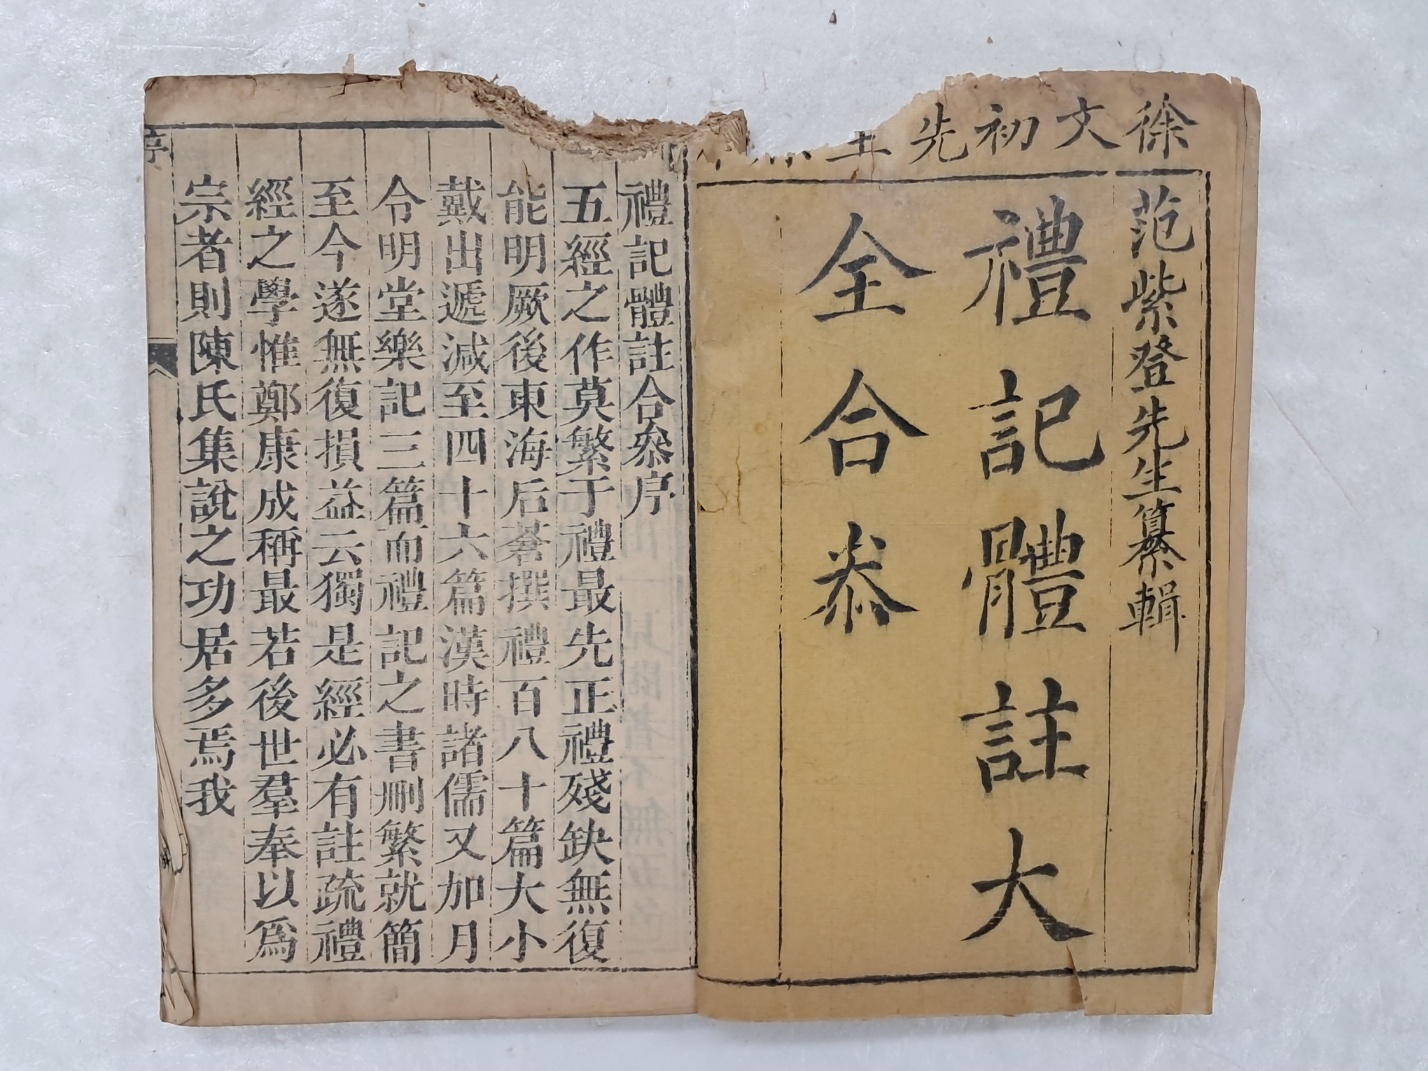 徐文初先生
范紫登先生纂輯
禮記體註大
全合叅
禮記體註合叅序
五經之作莫繁于禮最先正禮殘缺無復
能明厥後東海后蒼撰禮百八十篇大小
戴出遞減至四十六篇漢時諸儒又加月
令明堂樂記三篇而禮記之書刪繁就簡
至今遂無復損益云獨是經必有註疏禮
經之學惟鄭康成稱最若後世羣奉以爲
宗者則陳氏集說之功居多焉我
序